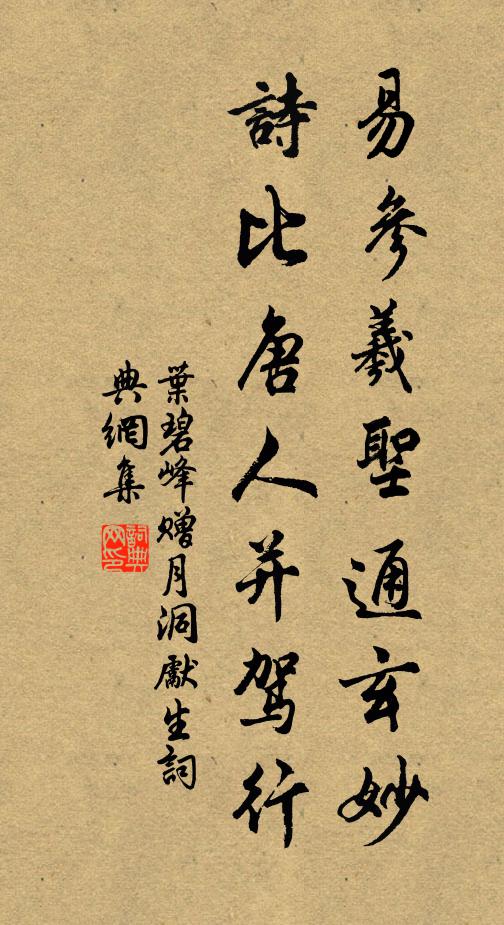 易參羲聖通玄妙
詩比唐人并駕行
葉碧峰贈月洞獻生詞
典網集
詞典网印